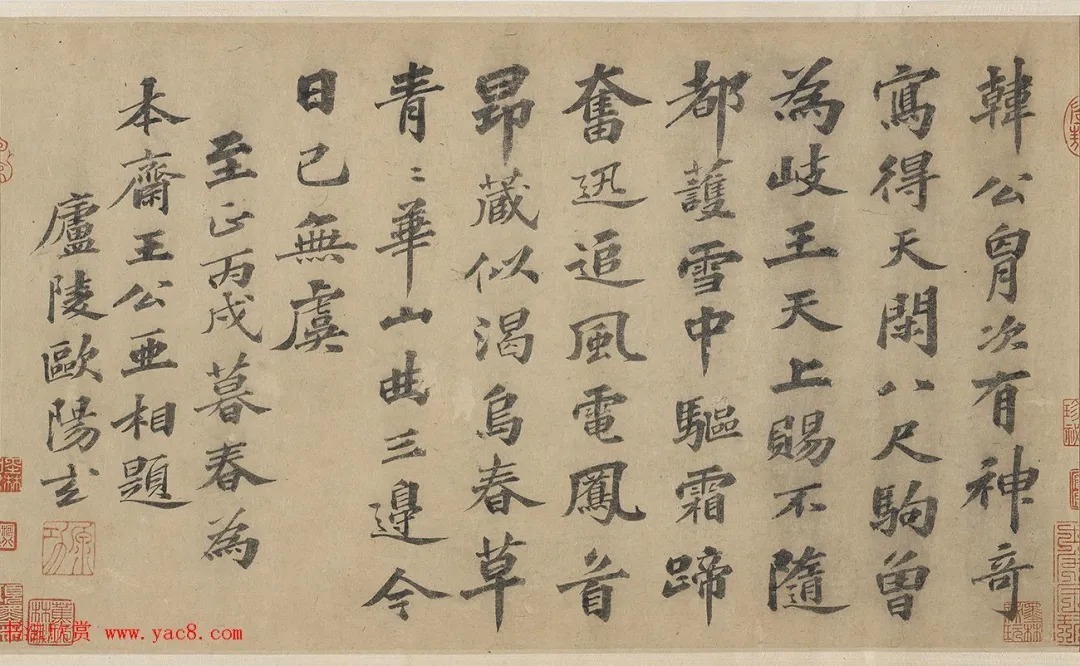 韓公胷次有神奇
寫得天閑八尺駒曾
為岐王天上賜不隨
都護雪中驅霜蹄
奮迅追風電鳳首
昂藏似渴烏春草
青〻華山曲三邊今
日已無虞
至正丙戌暮春為
本齋王公亞相題
廬陵歐陽玄
原功
书法欣赏 www.yac8.com